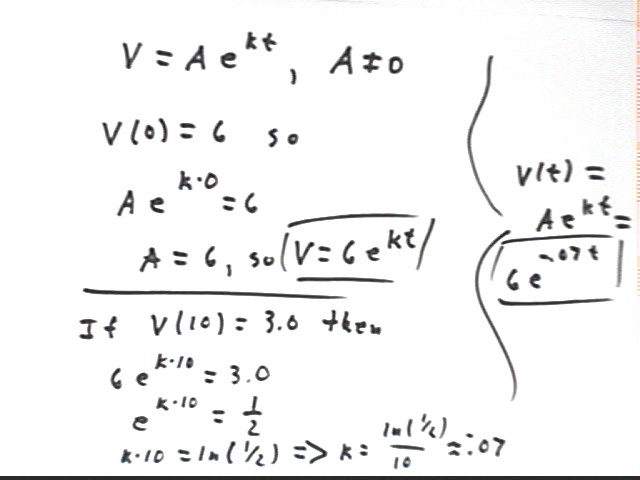 V = A e^{kt}, A ≠ 0
V(0) = 6 so
A e^{k·0} = 6
A = 6, so V = 6 e^{kt}
If V(10) = 3.0 then
6 e^{k·10} = 3.0
e^{k·10} = 1/2
k·10 = ln(1/2) => k = ln(1/2)/10 ≈ -.07
V(t) =
A e^{kt} =
6 e^{-.07t}